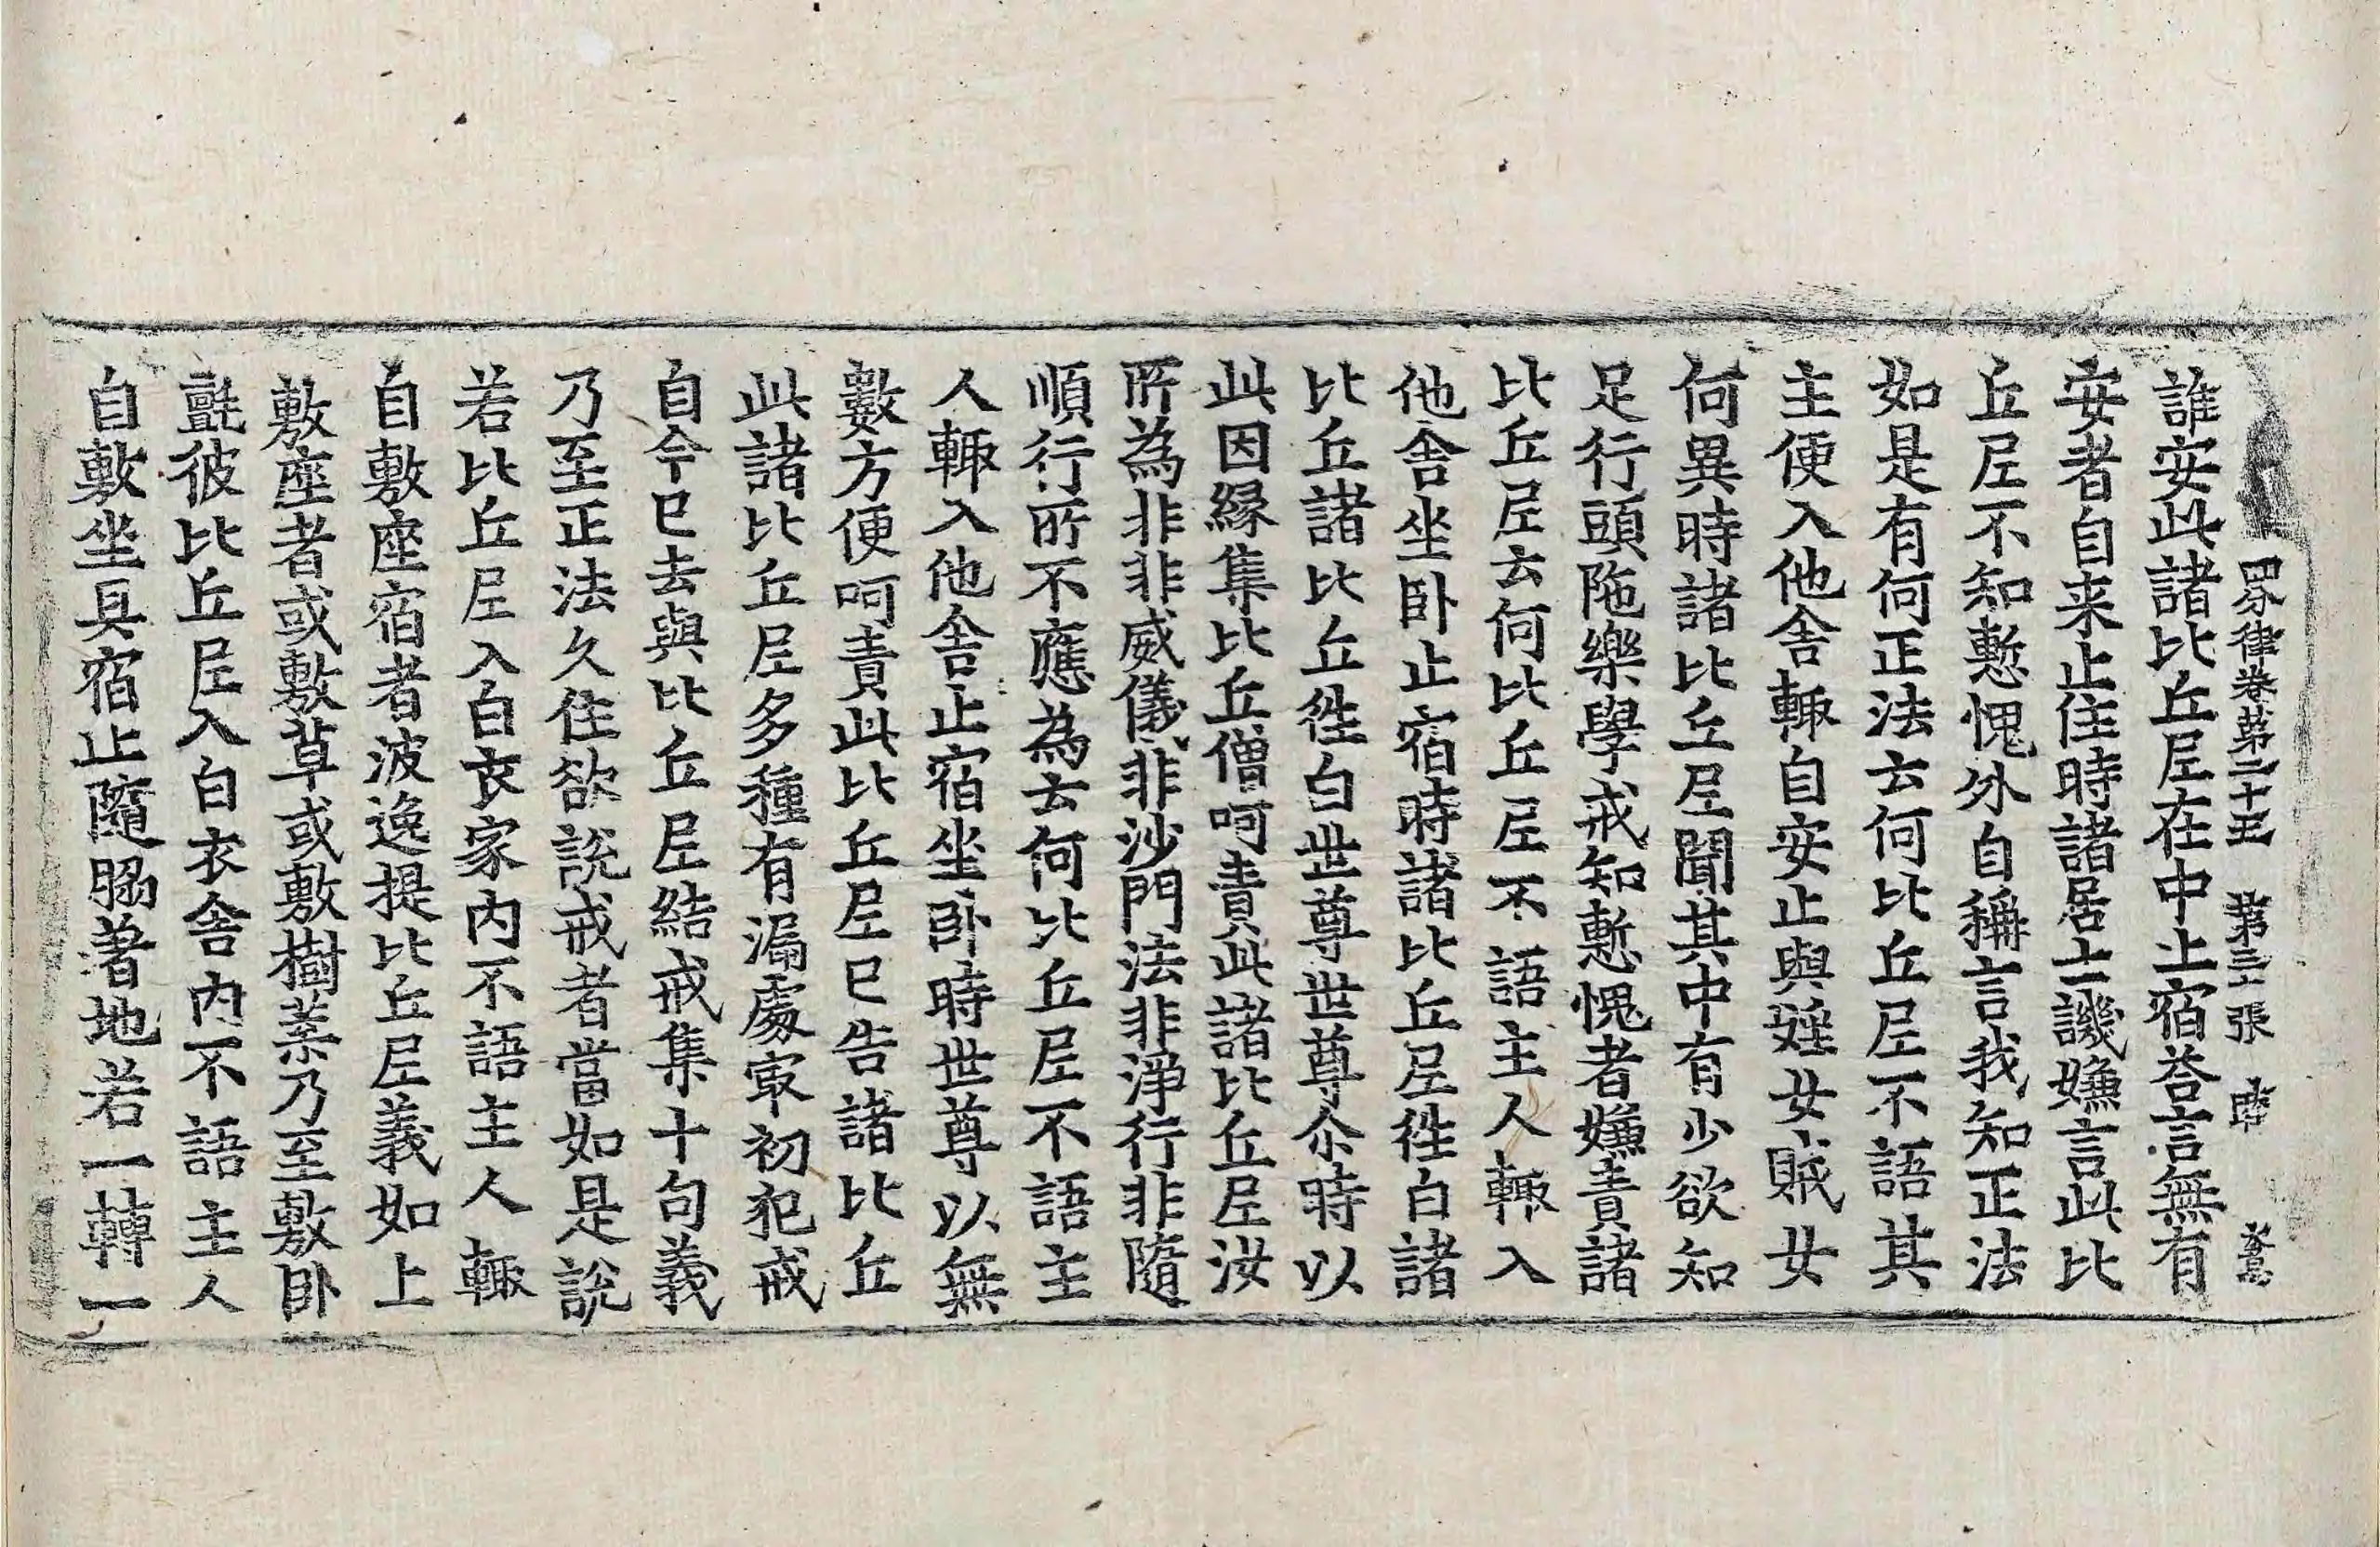 四分律卷第二十五 第三十張
誰安此諸比丘尼在中止宿荅言無有
安者自来止住時諸居士譏嫌言此比
丘尼不知慙愧外自稱言我知正法
如是有何正法云何比丘尼不語其
主便入他舍輙自安止與婬女賊女
何異時諸比丘尼聞其中有少欲知
足行頭陁樂學戒知慙愧者嫌責諸
比丘尼云何比丘尼不語主人輙入
他舍坐卧止宿時諸比丘尼徃白諸
比丘諸比丘徃白世尊世尊尒時以
此因縁集比丘僧呵責此諸比丘尼汝
所為非非威儀非沙門法非淨行非隨
順行所不應為云何比丘尼不語主
人輙入他舍止宿坐卧時世尊以無
數方便呵責此比丘尼已告諸比丘
此諸比丘尼多種有漏處㝡初犯戒
自今已去與比丘尼結戒集十句義
乃至正法久住欲説戒者當如是説
若比丘尼入白衣家内不語主人輙
自敷座宿者波逸提比丘尼義如上
敷座者或敷草或敷樹葉乃至敷卧
氈彼比丘尼入白衣舍内不語主人
自敷坐具宿止隨脇著地若一轉一